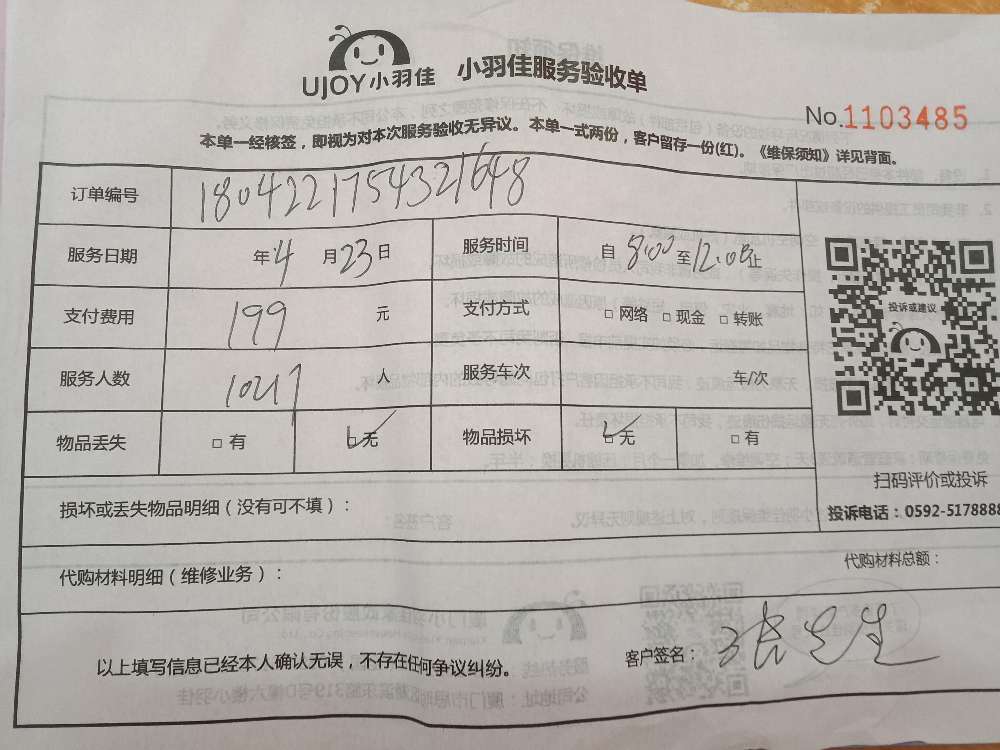 UJOY小羽佳 小羽佳服务验收单
No.1103485
本单一经核签，即视为对本次服务验收无异议。本单一式两份，客户留存一份(红)。《维保须知》详见背面。
订单编号 1804221754321648
服务日期 年4月23日 服务时间 自8:00至12:00止
支付费用 199 元 支付方式 □网络 □现金 □转账
服务人数 人 服务车次 车/次
物品丢失 □有 ☑无 物品损坏 ☑无 □有
投诉或建议
扫码评价或投诉
投诉电话：0592-5178888
损坏或丢失物品明细（没有可不填）：
代购材料明细（维修业务）： 代购材料总额：
以上填写信息已经本人确认无误，不存在任何争议纠纷。 客户签名：张先生